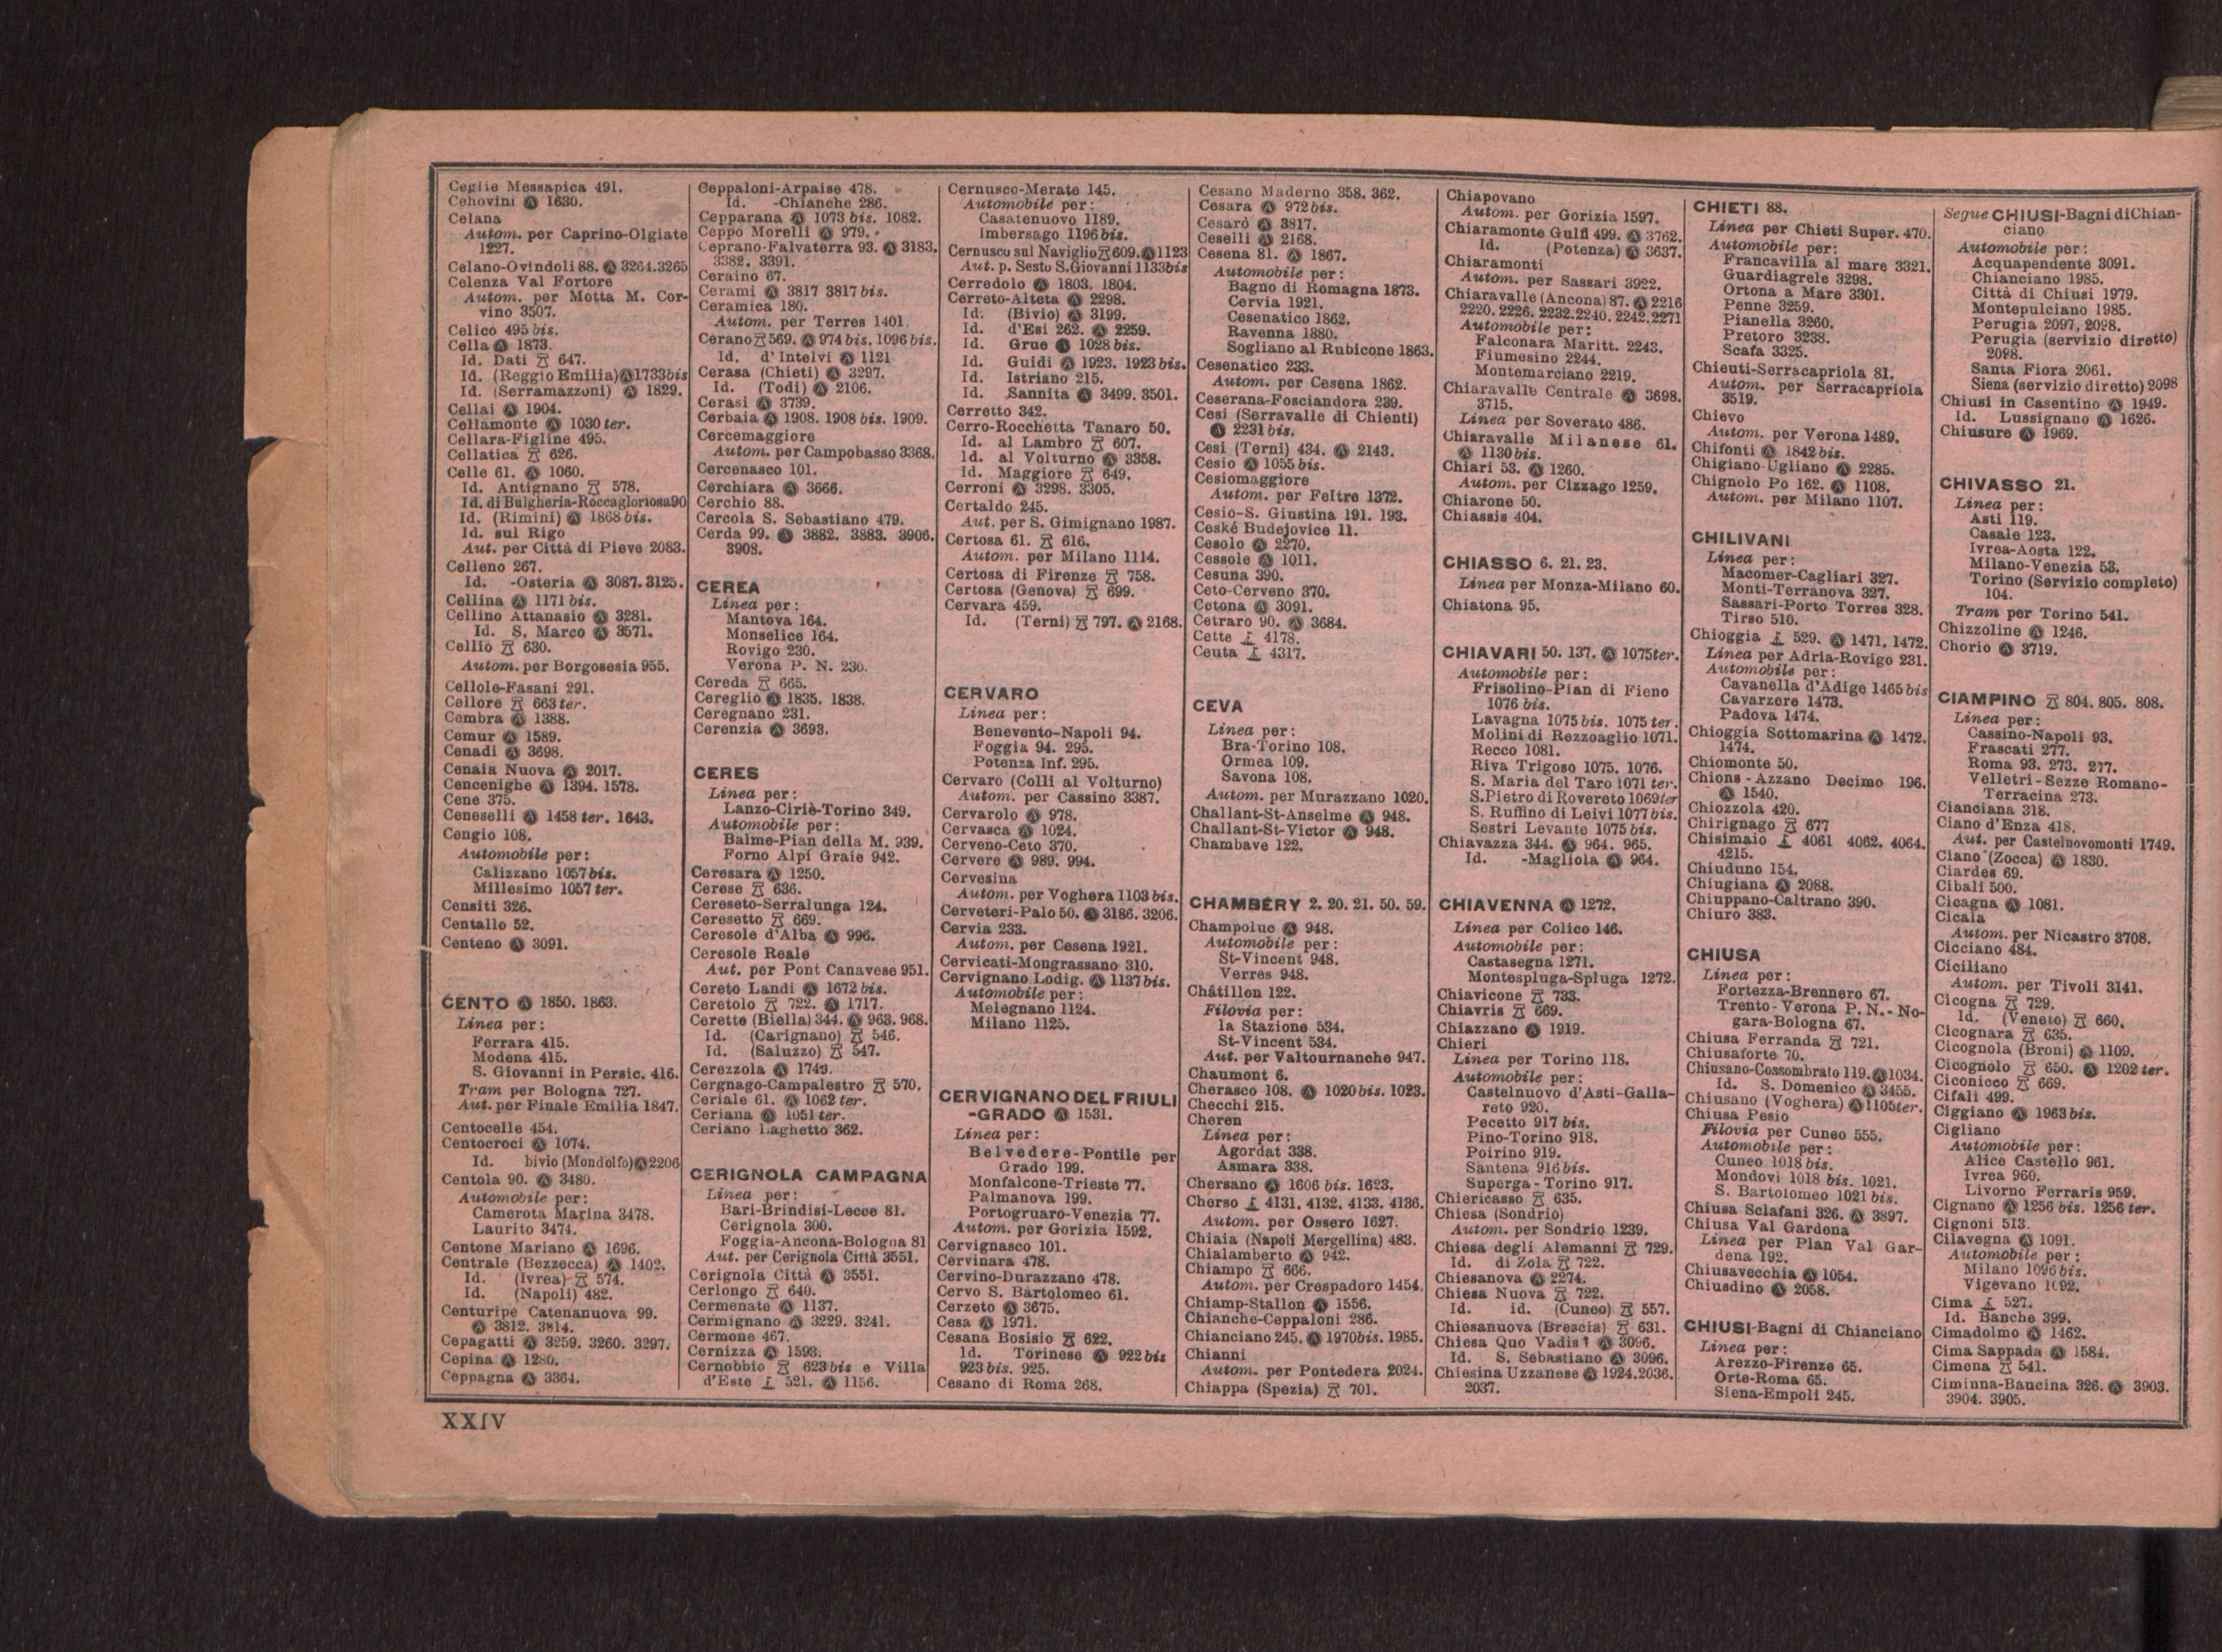 Ceglie Messapica 491.
Cehovini Ⓐ 1630.
Celana
Autom. per Caprino-Olgiate
1227.
Celano-Ovindoli 88. Ⓐ 3264.3265
Celenza Val Fortore
Autom. per Motta M. Cor-
vino 3507.
Celico 495 bis.
Cella Ⓐ 1873.
Id. Dati 647.
Id. (Reggio Emilia) Ⓐ 1733bis
Id. (Serramazzoni) Ⓐ 1829.
Cellai Ⓐ 1904.
Cellamonte Ⓐ 1030 ter.
Cellara-Figline 495.
Cellatica 626.
Celle 61. Ⓐ 1060.
Id. Antignano 578.
Id. di Bulgheria-Roccagloriosa 90
Id. (Rimini) Ⓐ 1868 bis.
Id. sul Rigo
Aut. per Città di Pieve 2083.
Celleno 267.
Id. -Osteria Ⓐ 3087. 3125.
Cellina Ⓐ 1171 bis.
Cellino Attanasio Ⓐ 3281.
Id. S. Marco Ⓐ 3571.
Cellio 630.
Autom. per Borgosesia 955.
Cellole-Fasani 291.
Cellore 663 ter.
Cembra Ⓐ 1388.
Cemur Ⓐ 1589.
Cenadi Ⓐ 3698.
Cenaia Nuova Ⓐ 2017.
Cencenighe Ⓐ 1394. 1578.
Cene 375.
Ceneselli Ⓐ 1458 ter. 1643.
Cengio 108.
Automobile per:
Calizzano 1057 bis.
Millesimo 1057 ter.
Censiti 326.
Centallo 52.
Centeno Ⓐ 3091.
CENTO Ⓐ 1850. 1863.
Linea per:
Ferrara 415.
Modena 415.
S. Giovanni in Persic. 416.
Tram per Bologna 727.
Aut. per Finale Emilia 1847.
Centocelle 454.
Centocroci Ⓐ 1074.
Id. bivio (Mondolfo) Ⓐ 2206
Centola 90. Ⓐ 3480.
Automobile per:
Camerota Marina 3478.
Laurito 3474.
Centone Mariano Ⓐ 1696.
Centrale (Bezzecca) Ⓐ 1402.
Id. (Ivrea) 574.
Id. (Napoli) 482.
Centuripe Catenanuova 99.
Ⓐ 3812. 3814.
Cepagatti Ⓐ 3259. 3260. 3297.
Cepina Ⓐ 1280.
Ceppagna Ⓐ 3364.
Ceppaloni-Arpaise 478.
Id. -Chianche 286.
Cepparana Ⓐ 1073 bis. 1082.
Ceppo Morelli Ⓐ 979.
Ceprano-Falvaterra 93. Ⓐ 3183.
3382. 3391.
Ceraino 67.
Cerami Ⓐ 3817 3817 bis.
Ceramica 180.
Autom. per Terres 1401.
Cerano 569. Ⓐ 974 bis. 1096 bis.
Id. d'Intelvi Ⓐ 1121
Cerasa (Chieti) Ⓐ 3297.
Id. (Todi) Ⓐ 2106.
Cerasi Ⓐ 3739.
Cerbaia Ⓐ 1908. 1908 bis. 1909.
Cercemaggiore
Autom. per Campobasso 3368.
Cercenasco 101.
Cerchiara Ⓐ 3666.
Cerchio 88.
Cercola S. Sebastiano 479.
Cerda 99. Ⓐ 3882. 3883. 3906.
3908.
CEREA
Linea per:
Mantova 164.
Monselice 164.
Rovigo 230.
Verona P. N. 230.
Cereda 665.
Cereglio Ⓐ 1835. 1838.
Ceregnano 231.
Cerenzia Ⓐ 3693.
CERES
Linea per:
Lanzo-Ciriè-Torino 349.
Automobile per:
Balme-Pian della M. 939.
Forno Alpi Graie 942.
Ceresara Ⓐ 1250.
Cerese 636.
Cereseto-Serralunga 124.
Ceresetto 669.
Ceresole d'Alba Ⓐ 996.
Ceresole Reale
Aut. per Pont Canavese 951.
Cereto Landi Ⓐ 1672 bis.
Ceretolo 722. Ⓐ 1717.
Ceretto (Biella) 344. Ⓐ 963. 968.
Id. (Carignano) 546.
Id. (Saluzzo) 547.
Cerezzola Ⓐ 1749.
Cergnago-Campalestro 570.
Ceriale 61. Ⓐ 1062 ter.
Ceriana Ⓐ 1051 ter.
Ceriano Laghetto 362.
CERIGNOLA CAMPAGNA
Linea per:
Bari-Brindisi-Lecce 81.
Cerignola 300.
Foggia-Ancona-Bologna 81
Aut. per Cerignola Città 3551.
Cerignola Città Ⓐ 3551.
Cerlongo 640.
Cermenate Ⓐ 1137.
Cermignano Ⓐ 3229. 3241.
Cermone 467.
Cernizza Ⓐ 1593.
Cernobbio 623 bis e Villa
d'Este 521. Ⓐ 1156.
Cernusco-Merate 145.
Automobile per:
Casatenuovo 1189.
Imbersago 1196 bis.
Cernusco sul Naviglio 609. Ⓐ 1123
Aut. p. Sesto S. Giovanni 1133bis
Cerredolo Ⓐ 1803. 1804.
Cerreto-Alteta Ⓐ 2298.
Id. (Bivio) Ⓐ 3199.
Id. d'Esi 262. Ⓐ 2259.
Id. Grue Ⓐ 1028 bis.
Id. Guidi Ⓐ 1923. 1923 bis.
Id. Istriano 215.
Id. Sannita Ⓐ 3499. 3501.
Cerretto 342.
Cerro-Rocchetta Tanaro 50.
Id. al Lambro 607.
Id. al Volturno Ⓐ 3358.
Id. Maggiore 649.
Cerroni Ⓐ 3298. 3305.
Certaldo 245.
Aut. per S. Gimignano 1987.
Certosa 61. 616.
Autom. per Milano 1114.
Certosa di Firenze 758.
Certosa (Genova) 699.
Cervara 459.
Id. (Terni) 797. Ⓐ 2168.
CERVARO
Linea per:
Benevento-Napoli 94.
Foggia 94. 295.
Potenza Inf. 295.
Cervaro (Colli al Volturno)
Autom. per Cassino 3387.
Cervarolo Ⓐ 978.
Cervasca Ⓐ 1024.
Cerveno-Ceto 370.
Cervere Ⓐ 989. 994.
Cervesina
Autom. per Voghera 1103 bis.
Cerveteri-Palo 50. Ⓐ 3186. 3206.
Cervia 233.
Autom. per Cesena 1921.
Cervicati-Mongrassano 310.
Cervignano Lodig. Ⓐ 1137 bis.
Automobile per:
Melegnano 1124.
Milano 1125.
CERVIGNANO DEL FRIULI
-GRADO Ⓐ 1531.
Linea per:
Belvedere-Pontile per
Grado 199.
Monfalcone-Trieste 77.
Palmanova 199.
Portogruaro-Venezia 77.
Autom. per Gorizia 1592.
Cervignasco 101.
Cervinara 478.
Cervino-Durazzano 478.
Cervo S. Bartolomeo 61.
Cerzeto Ⓐ 3675.
Cesa Ⓐ 1971.
Cesana Bosisio 622.
Id. Torinese Ⓐ 922 bis
923 bis. 925.
Cesano di Roma 268.
Cesano Maderno 358. 362.
Cesara Ⓐ 972 bis.
Cesarò Ⓐ 3817.
Ceselli Ⓐ 2168.
Cesena 81. Ⓐ 1867.
Automobile per:
Bagno di Romagna 1873.
Cervia 1921.
Cesenatico 1862.
Ravenna 1880.
Sogliano al Rubicone 1863.
Cesenatico 233.
Autom. per Cesena 1862.
Ceserana-Fosciandora 239.
Cesi (Serravalle di Chienti)
Ⓐ 2231 bis.
Cesi (Terni) 434. Ⓐ 2143.
Cesio Ⓐ 1055 bis.
Cesiomaggiore
Autom. per Feltre 1372.
Cesio-S. Giustina 191. 193.
Ceské Budejovice 11.
Cesolo Ⓐ 2270.
Cessole Ⓐ 1011.
Cesuna 390.
Ceto-Cerveno 370.
Cetona Ⓐ 3091.
Cetraro 90. Ⓐ 3684.
Cette 4178.
Ceuta 4317.
CEVA
Linea per:
Bra-Torino 108.
Ormea 109.
Savona 108.
Autom. per Murazzano 1020.
Challant-St-Anselme Ⓐ 948.
Challant-St-Victor Ⓐ 948.
Chambave 122.
CHAMBÉRY 2. 20. 21. 50. 59.
Champoluc Ⓐ 948.
Automobile per:
St-Vincent 948.
Verrès 948.
Châtillon 122.
Filovia per:
la Stazione 534.
St-Vincent 534.
Aut. per Valtournanche 947.
Chaumont 6.
Cherasco 108. Ⓐ 1020 bis. 1023.
Checchi 215.
Cheren
Linea per:
Agordat 338.
Asmara 338.
Chersano Ⓐ 1606 bis. 1623.
Cherso 4131. 4132. 4133. 4136.
Autom. per Ossero 1627.
Chiaia (Napoli Mergellina) 483.
Chialamberto Ⓐ 942.
Chiampo 666.
Autom. per Crespadoro 1454.
Chiamp-Stallon Ⓐ 1556.
Chianche-Ceppaloni 286.
Chianciano 245. Ⓐ 1970bis. 1985.
Chianni
Autom. per Pontedera 2024.
Chiappa (Spezia) 701.
Chiapovano
Autom. per Gorizia 1597.
Chiaramonte Gulfi 499. Ⓐ 3762.
Id. (Potenza) Ⓐ 3637.
Chiaramonti
Autom. per Sassari 3922.
Chiaravalle (Ancona) 87. Ⓐ 2216
2220. 2226. 2232. 2240. 2242. 2271
Automobile per:
Falconara Maritt. 2243.
Fiumesino 2244.
Montemarciano 2219.
Chiaravalle Centrale Ⓐ 3698.
3715.
Linea per Soverato 486.
Chiaravalle Milanese 61.
Ⓐ 1130 bis.
Chiari 53. Ⓐ 1260.
Autom. per Cizzago 1259.
Chiarone 50.
Chiassis 404.
CHIASSO 6. 21. 23.
Linea per Monza-Milano 60.
Chiatona 95.
CHIAVARI 50. 137. Ⓐ 1075ter.
Automobile per:
Frisolino-Pian di Fieno
1076 bis.
Lavagna 1075 bis. 1075 ter.
Molini di Rezzoaglio 1071.
Recco 1081.
Riva Trigoso 1075. 1076.
S. Maria del Taro 1071 ter.
S. Pietro di Rovereto 1069ter
S. Ruffino di Leivi 1077 bis.
Sestri Levante 1075 bis.
Chiavazza 344. Ⓐ 964. 965.
Id. -Magliola Ⓐ 964.
CHIAVENNA Ⓐ 1272.
Linea per Colico 146.
Automobile per:
Castasegna 1271.
Montespluga-Spluga 1272.
Chiavicone 733.
Chiavris 669.
Chiazzano Ⓐ 1919.
Chieri
Linea per Torino 118.
Automobile per:
Castelnuovo d'Asti-Galla-
reto 920.
Pecetto 917 bis.
Pino-Torino 918.
Poirino 919.
Santena 916 bis.
Superga-Torino 917.
Chiericasso 635.
Chiesa (Sondrio)
Autom. per Sondrio 1239.
Chiesa degli Alemanni 729.
Id. di Zola 722.
Chiesanova Ⓐ 2274.
Chiesa Nuova 722.
Id. id. (Cuneo) 557.
Chiesanuova (Brescia) 631.
Chiesa Quo Vadis? Ⓐ 3096.
Id. S. Sebastiano Ⓐ 3096.
Chiesina Uzzanese Ⓐ 1924. 2036.
2037.
CHIETI 88.
Linea per Chieti Super. 470.
Automobile per:
Francavilla al mare 3321.
Guardiagrele 3298.
Ortona a Mare 3301.
Penne 3259.
Pianella 3260.
Pretoro 3238.
Scafa 3325.
Chieuti-Serracapriola 81.
Autom. per Serracapriola
3519.
Chievo
Autom. per Verona 1489.
Chifonti Ⓐ 1842 bis.
Chigiano-Ugliano Ⓐ 2285.
Chignolo Po 162. Ⓐ 1108.
Autom. per Milano 1107.
CHILIVANI
Linea per:
Macomer-Cagliari 327.
Monti-Terranova 327.
Sassari-Porto Torres 328.
Tirso 510.
Chioggia 529. Ⓐ 1471. 1472.
Linea per Adria-Rovigo 231.
Automobile per:
Cavanella d'Adige 1465 bis
Cavarzere 1473.
Padova 1474.
Chioggia Sottomarina Ⓐ 1472.
1474.
Chiomonte 50.
Chions - Azzano Decimo 196.
Ⓐ 1540.
Chiozzola 420.
Chirignago 677
Chisimaio 4061 4062. 4064.
4215.
Chiuduno 154.
Chiugiana Ⓐ 2088.
Chiuppano-Caltrano 390.
Chiuro 383.
CHIUSA
Linea per:
Fortezza-Brennero 67.
Trento - Verona P. N. - No-
gara-Bologna 67.
Chiusa Ferranda 721.
Chiusaforte 70.
Chiusano-Cossombrato 119. Ⓐ 1034.
Id. S. Domenico Ⓐ 3455.
Chiusano (Voghera) Ⓐ 1105ter.
Chiusa Pesio
Filovia per Cuneo 555.
Automobile per:
Cuneo 1018 bis.
Mondovì 1018 bis. 1021.
S. Bartolomeo 1021 bis.
Chiusa Sclafani 326. Ⓐ 3897.
Chiusa Val Gardena
Linea per Plan Val Gar-
dena 192.
Chiusavecchia Ⓐ 1054.
Chiusdino Ⓐ 2058.
CHIUSI-Bagni di Chianciano
Linea per:
Arezzo-Firenze 65.
Orte-Roma 65.
Siena-Empoli 245.
Segue CHIUSI-Bagni di Chian-
ciano
Automobile per:
Acquapendente 3091.
Chianciano 1985.
Città di Chiusi 1979.
Montepulciano 1985.
Perugia 2097, 2098.
Perugia (servizio diretto)
2098.
Santa Fiora 2061.
Siena (servizio diretto) 2098
Chiusi in Casentino Ⓐ 1949.
Id. Lussignano Ⓐ 1626.
Chiusure Ⓐ 1969.
CHIVASSO 21.
Linea per:
Asti 119.
Casale 123.
Ivrea-Aosta 122.
Milano-Venezia 53.
Torino (Servizio completo)
104.
Tram per Torino 541.
Chizzoline Ⓐ 1246.
Chorio Ⓐ 3719.
CIAMPINO 804. 805. 808.
Linea per:
Cassino-Napoli 93.
Frascati 277.
Roma 93. 273. 277.
Velletri - Sezze Romano-
Terracina 273.
Cianciana 318.
Ciano d'Enza 418.
Aut. per Castelnovomonti 1749.
Ciano (Zocca) Ⓐ 1830.
Ciardes 69.
Cibali 500.
Cicagna Ⓐ 1081.
Cicala
Autom. per Nicastro 3708.
Cicciano 484.
Ciciliano
Autom. per Tivoli 3141.
Cicogna 729.
Id. (Veneto) 660.
Cicognara 635.
Cicognola (Broni) Ⓐ 1109.
Cicognolo 650. Ⓐ 1202 ter.
Ciconicco 669.
Cifali 499.
Ciggiano Ⓐ 1963 bis.
Cigliano
Automobile per:
Alice Castello 961.
Ivrea 960.
Livorno Ferraris 959.
Cignano Ⓐ 1256 bis. 1256 ter.
Cignoni 513.
Cilavegna Ⓐ 1091.
Automobile per:
Milano 1096 bis.
Vigevano 1092.
Cima 527.
Id. Banche 399.
Cimadolmo Ⓐ 1462.
Cima Sappada Ⓐ 1584.
Cimena 541.
Ciminna-Baucina 326. Ⓐ 3903.
3904. 3905.
XXIV